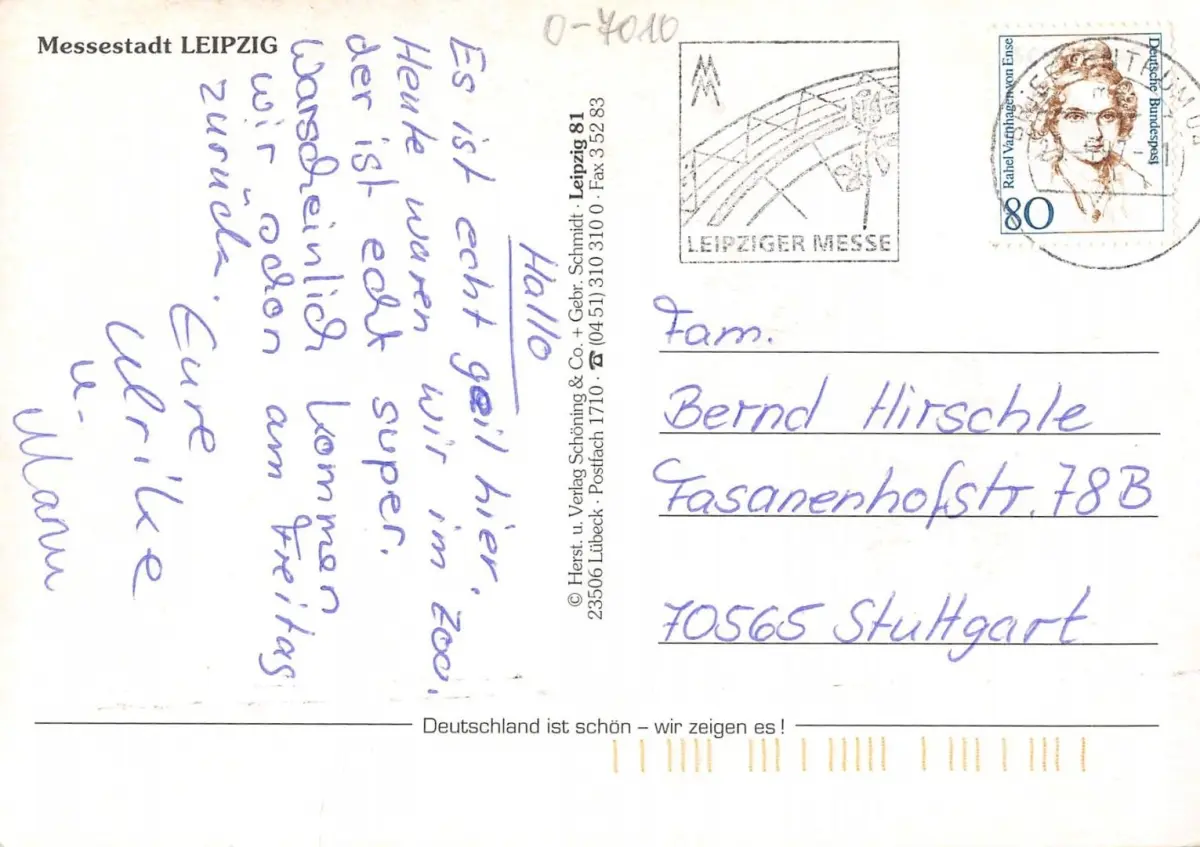 Messestadt LEIPZIG
0-7010
Hallo
Es ist echt geil hier.
Heute waren wir im Zoo,
der ist echt super.
Warscheinlich kommen
wir schon am Freitag
zurück.
Eure
Ulrike
u.
Manu
© Herst. u. Verlag Schöning & Co. + Gebr. Schmidt · Leipzig 81
23506 Lübeck · Postfach 1710 · ☎ (04 51) 310 310 0 · Fax 3 52 83
LEIPZIGER MESSE
Rahel Varnhagen von Ense
Deutsche Bundespost
80
Fam.
Bernd Hirschle
Fasanenhofstr. 78B
70565 Stuttgart
Deutschland ist schön – wir zeigen es!